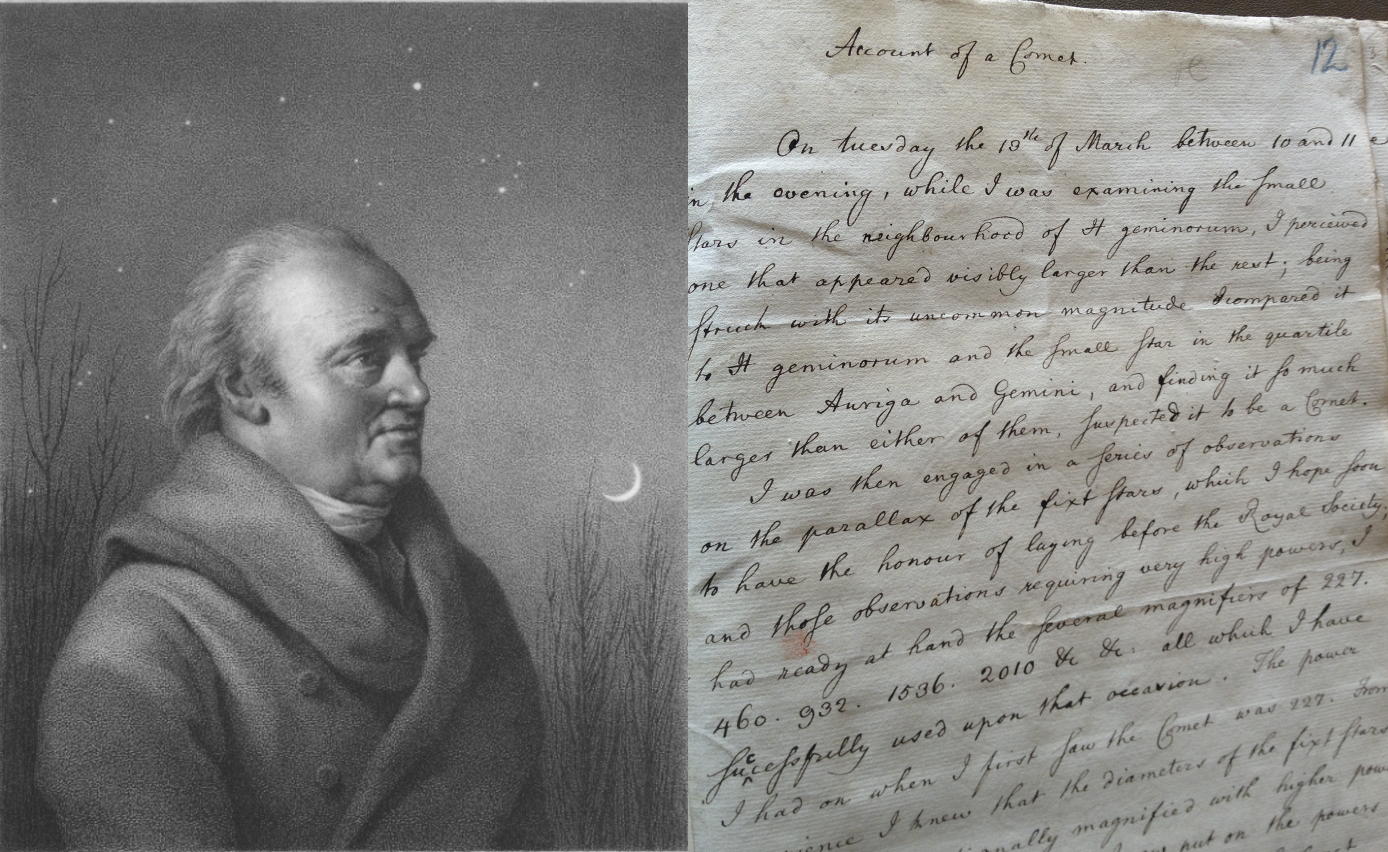 Account of a Comet.
12
On tuesday the 13th of March between 10 and 11
in the evening, while I was examining the small
stars in the neighbourhood of H geminorum, I perceived
one that appeared visibly larger than the rest; being
struck with its uncommon magnitude I compared it
to H geminorum and the small star in the quartile
between Auriga and Gemini, and finding it so much
larger than either of them, suspected it to be a Comet.
I was then engaged in a series of observations
on the parallax of the fixt stars, which I hope soon
to have the honour of laying before the Royal Society;
and those observations requiring very high powers, I
had ready at hand the several magnifiers of 227.
460. 932. 1536. 2010 &c &c. all which I have
successfully used upon that occasion. The power
I had on when I first saw the Comet was 227. From
I knew that the diameters of the fixt stars
magnified with higher
put on the powers